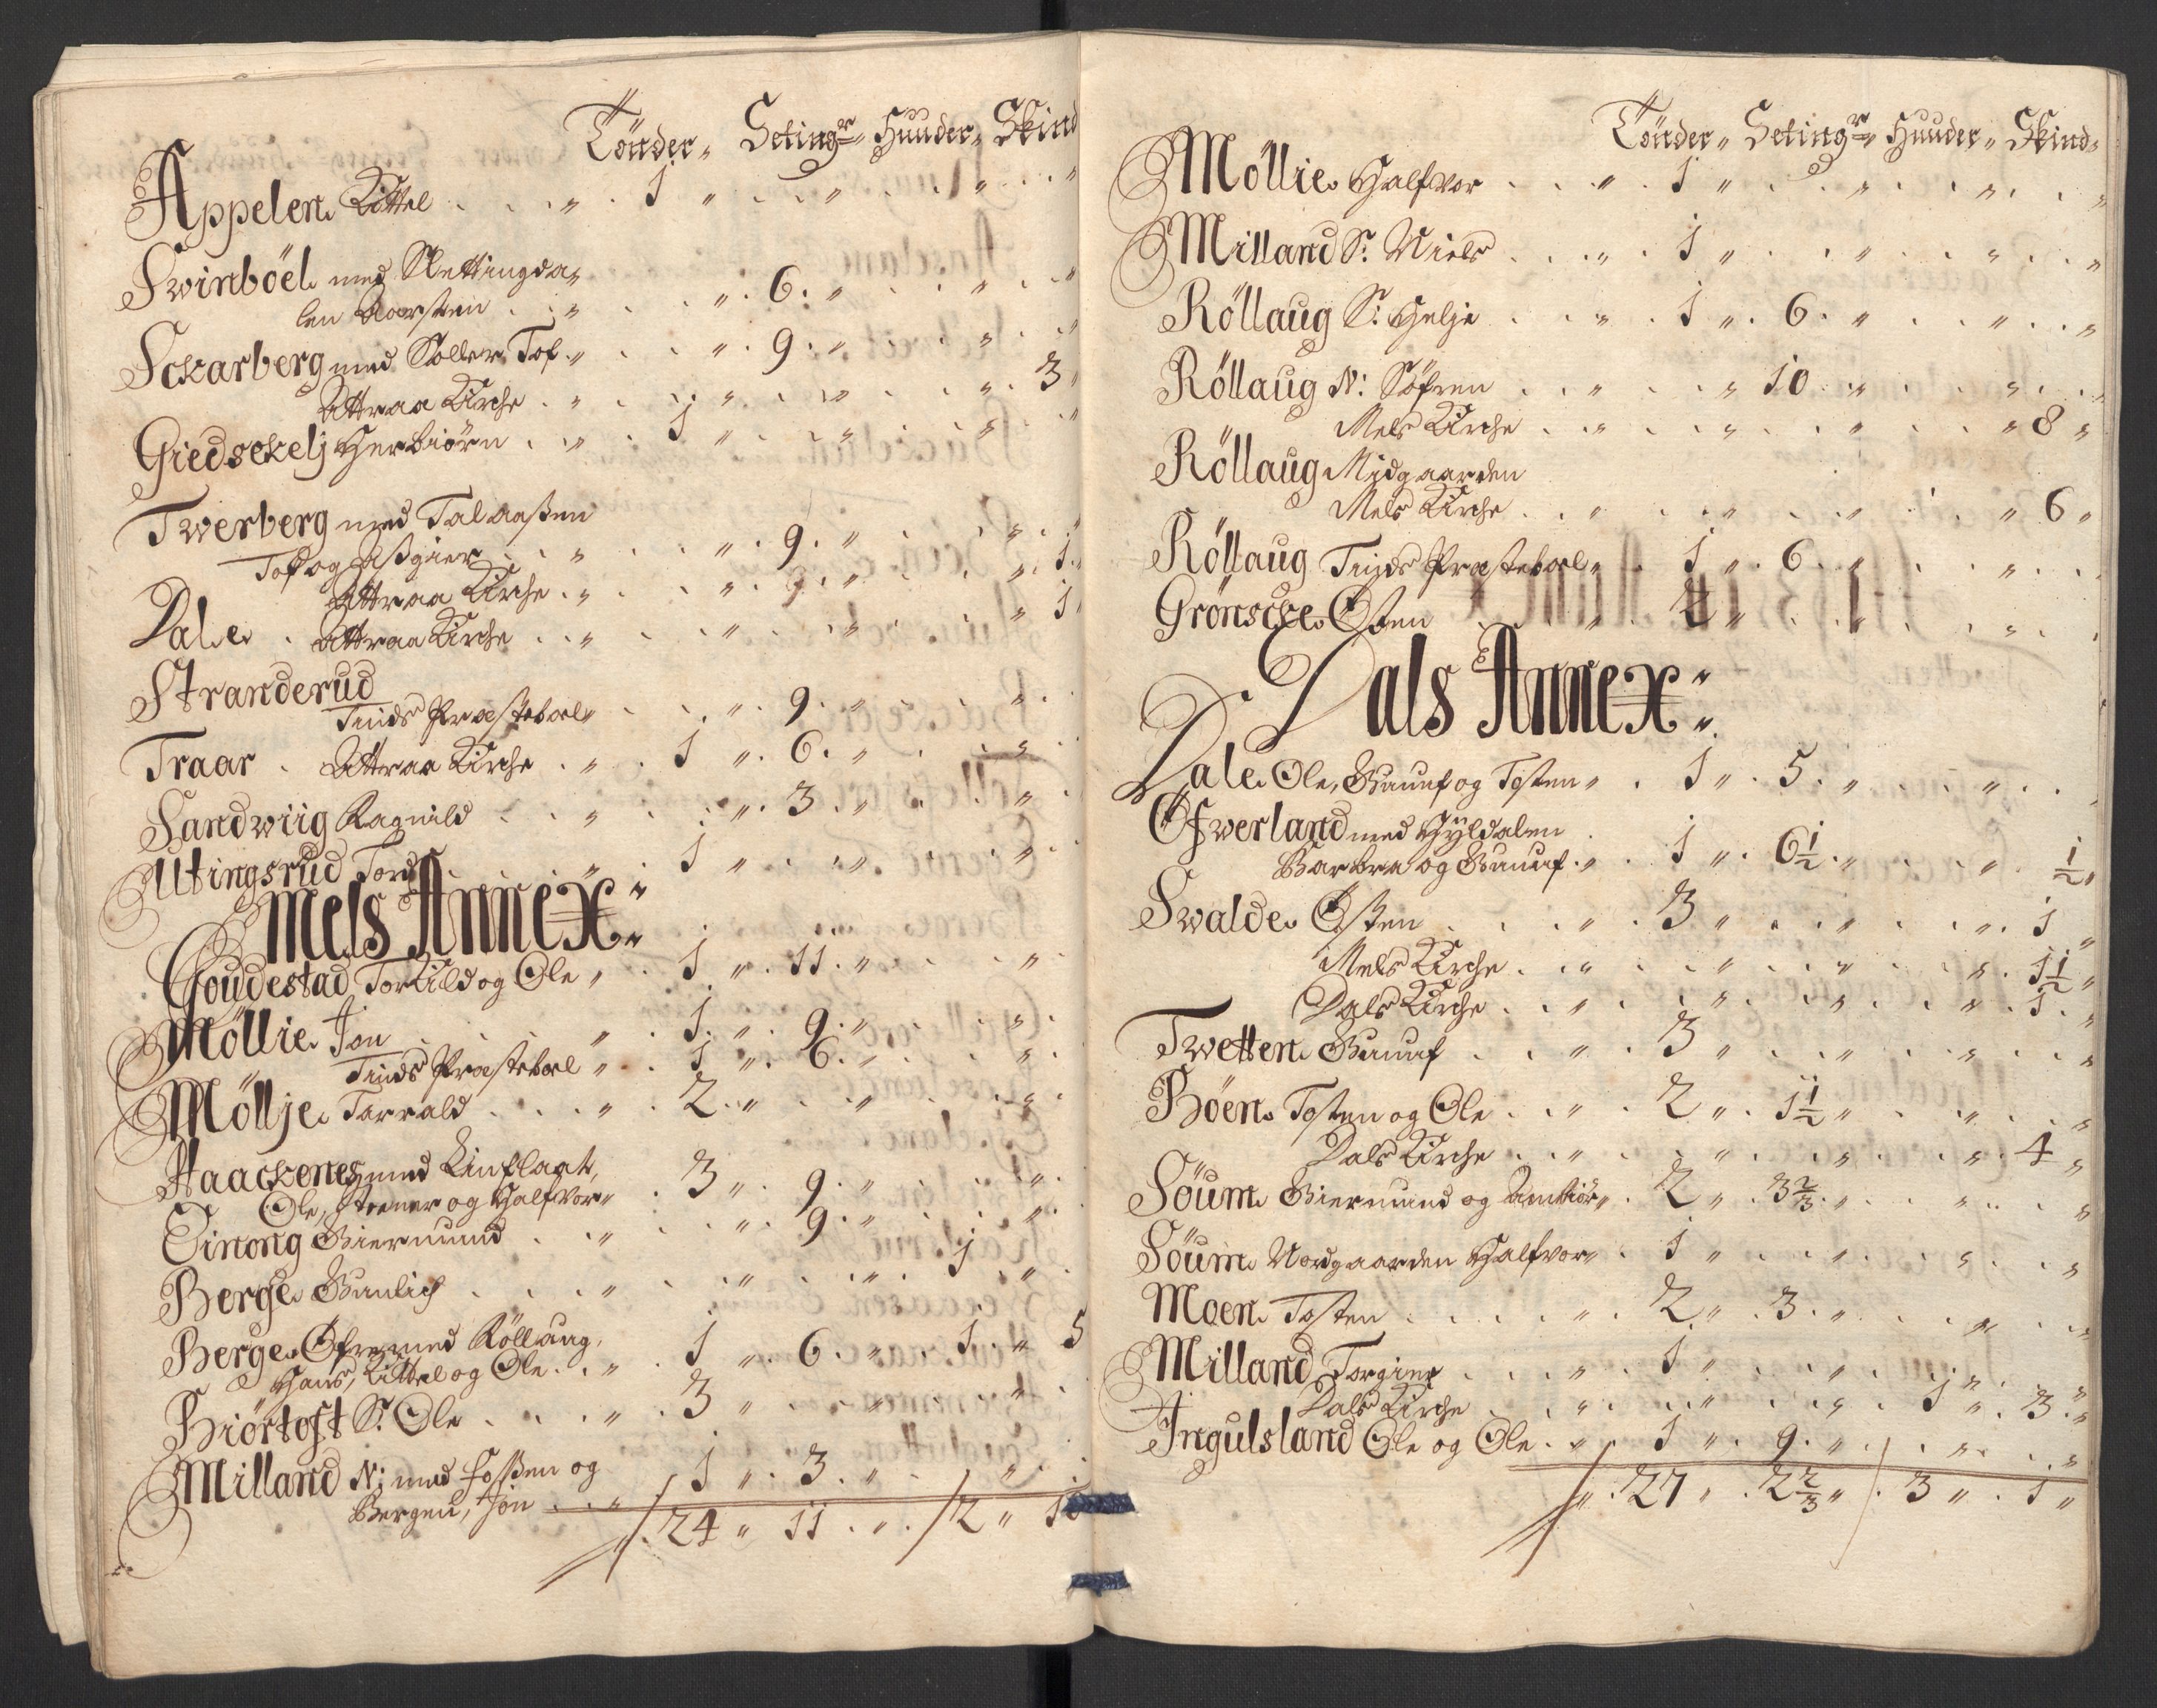 Tönder „ Setingr „ Huuder „ Skind
Appelen Kittel . . . „ . 1 „ . . „ . . „ . . „
Swinböel med Slettingda„
len Aarsten . . „ . . . „ . 6 . „ . . „ . . „
Sckarberg med Soller Tof . „ . . „ . 9 . „ . . „ . . „
Attraa Kirche . „ . . „ . . „ . . „ . 3 „
Giedsckelj Herbiörn . . „ . 1 „ . . „ . . „ . . „
Twerberg med Talaaßen
Tof og Aßgier . . „ . . „ . 9 . „ . . „ . . „
Attraa Kirche . „ . . „ . 9 . „ . . „ . 1 „
Dale . Attraa Kirche . . „ . . „ . . „ . . „ 1 „
Stranderud
Tinds Præsteboel „ . . „ . 9 . „ . . „ . .
Traar . Attraa Kirche . „ . 1 „ . 6 . „ . . „ .
Sandwiig Ragnild . . „ . . „ . 3 . „ . . „ .
Utingsrud Tord . . „ . 1 „ . . „ . . „ .
Mels Annex :
Goudestad Torkild og Ole „ . 1 „ . 11 . „ . . „ .
Möllie Jon . . . „ . 1 . „ . 9 . „ . . „ .
Tinds Præsteboel „ . 1 „ . 6 . „ . . „ .
Möllje Tarrald . . . „ . 2 . „ . . „ . . „ .
Haackenes med Linflaat,
Ole, Steener og Halfvor „ . 3 „ . 9 . „ . . „ .
Einong Giermund . . „ . . „ . 9 . „ . . „ .
Berge Gunlich . . . „ . . „ . . „ . 1 „ .
Berge Öfre med Röllaug,
Hans, Kittel og Ole . . „ . 1 „ . 6 . „ . 1 . „ 5
Biörtoft S: Ole . . . „ . 3 „ . . „ . . „ .
Milland N: med Foßen og
Bergen, Jon . . „ . 1 „ . 3 . „ . . „ .
„ . 24 „ 11 . „ . 2 „ 10
Tönder „ Setingr „ Huuder „ Skind „
Möllie Halfvor . . „ . 1 „ . . „ . . „ . . „
Milland S: Niels . . . „ . 1 „ . . „ . . „ . . „
Röllaug S: Helje . . „ . 1 „ . 6 . „ . . „ . . „
Röllaug N: Söfren . . „ . . „ 10 . „ . . „ . . „
Mels Kirche . . „ . . „ . . „ . . „ 8 „
Röllaug Midgaarden
Mels Kirche . . „ . . „ . . „ . . „ 6 „
Röllaug Tinds Præsteboel „ . 1 „ . 6 . „ . . „ . .
Grönscke Östen . . „ . 2 „ . . „ . . „ . .
Dals Annex :
Dale Ole, Gunuf og Tosten „ . 1 „ . 5 . „ . . „ . . „
Öfwerland med Gyldalen
Barbra og Gunuf . „ . 1 „ . 6½ . „ . . „ . ½ „
Swalde Östen . . . „ . 3 „ . . „ . . „ . 1 „
Mels Kirche . . „ . . „ . . „ . . „ . 1½ „
Dals Kirche . . „ . . „ . . „ . . „ . 1 . „
Twetten Gunuf . . „ . 3 „ . . „ . . „ . . „
Böen Tosten og Ole . . „ . 2 „ . 1½ „ . . „ . . „
Dals Kirche . . „ . . „ . . „ . . „ . 4 „
Söum Giermund og Anbiör „ . 2 „ . 3⅔ . „ . . „ . . „
Söum Nordgaarden Halfvor „ . 1 „ . . „ . . „ . . „
Moen Tosten . . . . „ . 2 „ . 3 . „ . . „ . . „
Milland Torgier . . . „ . 1 „ . . „ . . „ . . „
Dals Kirche . . „ . . „ . . „ . 1 „ . 3 . „
Ingulsland Ole og Ole . „ . 1 „ . 9 . „ . . „ . . „
„ . 27 „ . 2⅔ „ . 3 „ . 1 „